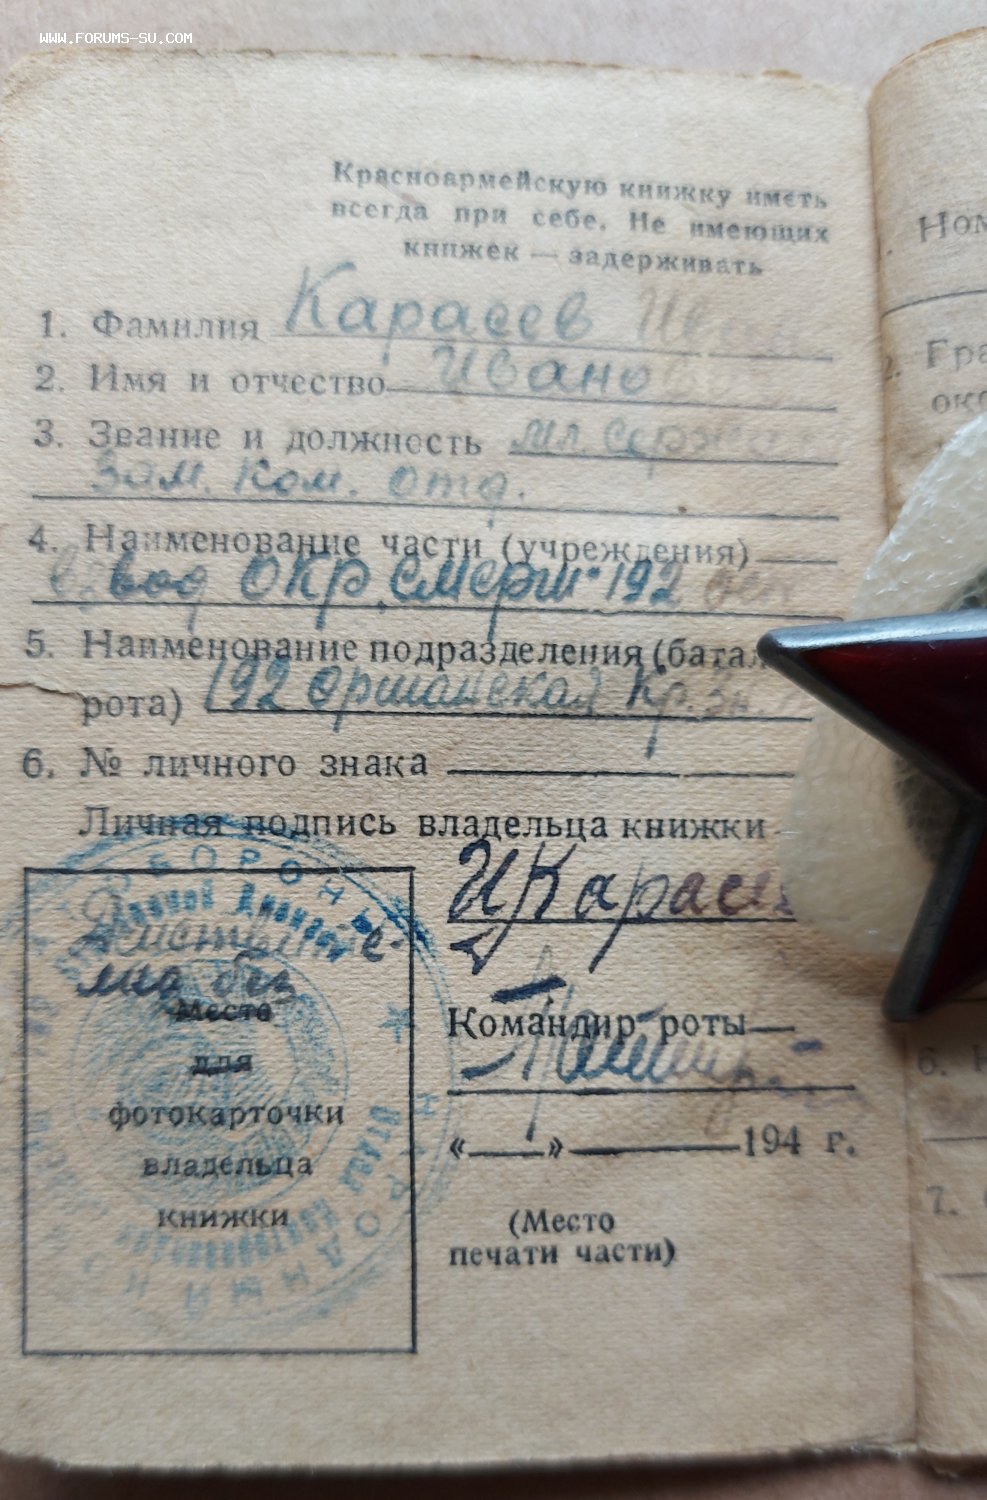 WWW.FORUMS-SU.COM
Красноармейскую книжку иметь
всегда при себе. Не имеющих
книжек — задерживать
1. Фамилия Карасев
2. Имя и отчество Ивано
3. Звание и должность мл. серж
Зам. Ком. отд.
4. Наименование части (учреждения)
Взвод ОКР. Смерш 192
5. Наименование подразделения (батал
рота) 192 Оршанская Кр. Зн.
6. № личного знака
Личная подпись владельца книжки
ИКарасе
Действите-
льно без
Место
для
фотокарточки
владельца
книжки
ОБОРОНЫ
Командир роты
« » 194 г.
(Место
печати части)
Ном
Гра
око
6.
7.